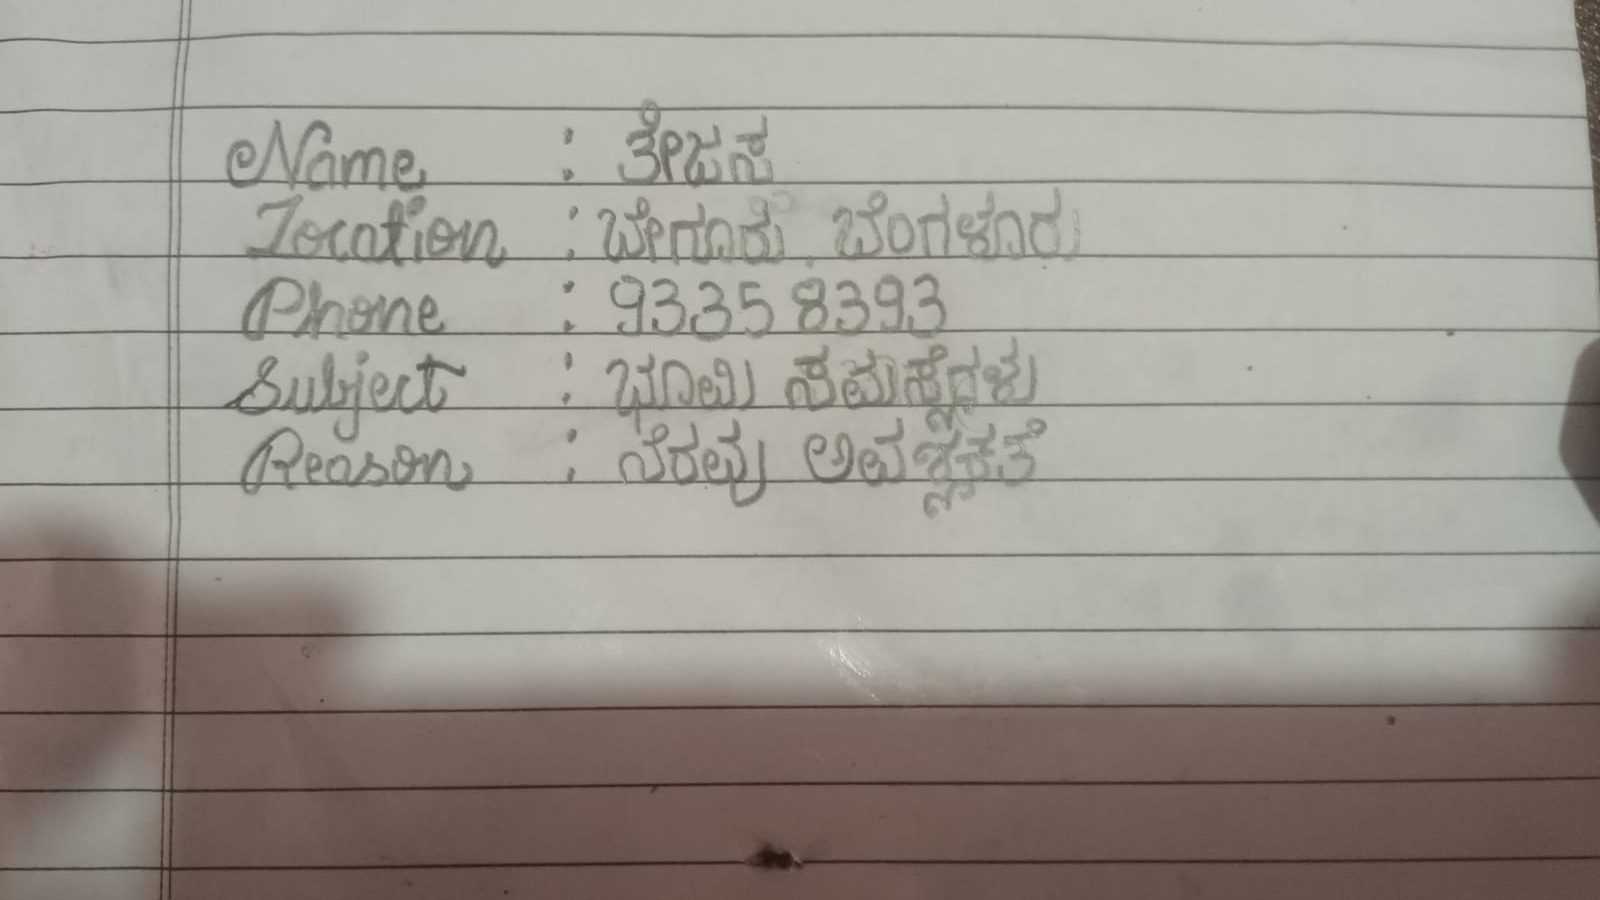 Name : ತೇಜಸ
Location : ಬೇಗೂರು, ಬೆಂಗಳೂರು
Phone : 93358393
Subject : ಭೂಮಿ ಸಮಸ್ಯೆಗಳು
Reason : ನೆರವು ಅವಶ್ಯಕತೆ